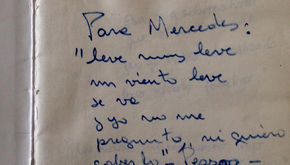 Para Mercedes:
"leve muy leve
un viento leve
se va
y yo no me
pregunto, ni quiero
saberlo" - Pessoa -